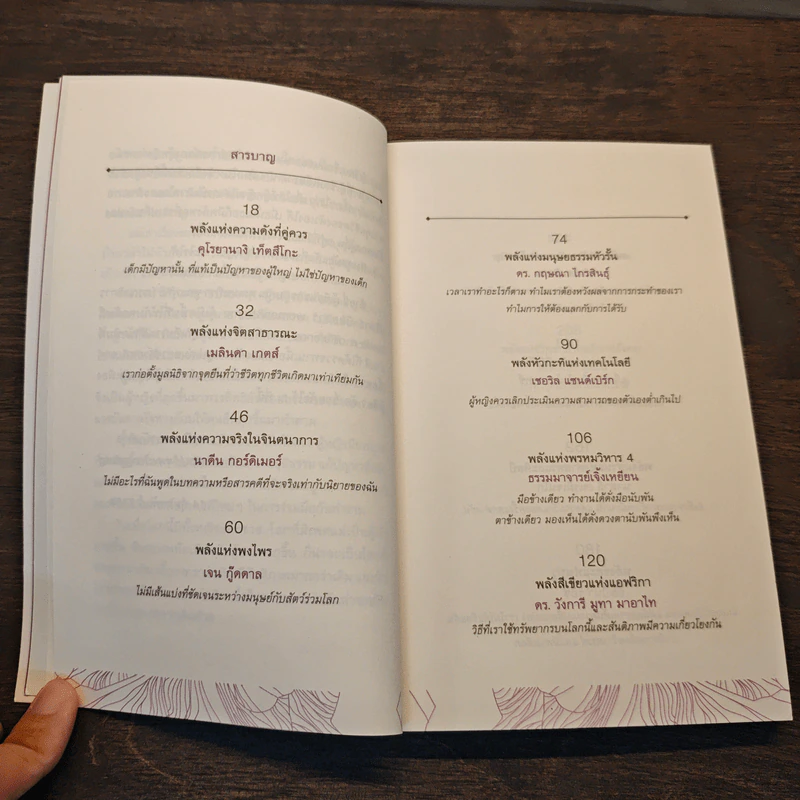 สารบาญ
18
พลังแห่งความดังที่คู่ควร
คุโรยานางิ เท็ตสึโกะ
เด็กมีปัญหานั้น ที่แท้เป็นปัญหาของผู้ใหญ่ ไม่ใช่ปัญหาของเด็ก
32
พลังแห่งจิตสาธารณะ
เมลินดา เกตส์
เราก่อตั้งมูลนิธิจากจุดยืนที่ว่าชีวิตทุกชีวิตเกิดมาเท่าเทียมกัน
46
พลังแห่งความจริงในจินตนาการ
นาดีน กอร์ดิเมอร์
ไม่มีอะไรที่ฉันพูดในบทความหรือสารคดีที่จะจริงเท่ากับนิยายของฉัน
60
พลังแห่งพงไพร
เจน กู๊ดดาล
ไม่มีเส้นแบ่งที่ชัดเจนระหว่างมนุษย์กับสัตว์ร่วมโลก
74
พลังแห่งมนุษยธรรมหัวรั้น
ดร. กฤษณา ไกรสินธุ์
เวลาเราทำอะไรก็ตาม ทำไมเราต้องหวังผลจากการกระทำของเรา
ทำไมการให้ต้องแลกกับการได้รับ
90
พลังหัวกะทิแห่งเทคโนโลยี
เชอริล แซนด์เบิร์ก
ผู้หญิงควรเลิกประเมินความสามารถของตัวเองต่ำเกินไป
106
พลังแห่งพรหมวิหาร 4
ธรรมมาจารย์เจิ้งเหยียน
มือข้างเดียว ทำงานได้ดั่งมือนับพัน
ตาข้างเดียว มองเห็นได้ดั่งดวงตานับพันพึงเห็น
120
พลังสีเขียวแห่งแอฟริกา
ดร. วังการี มูทา มาอาไท
วิธีที่เราใช้ทรัพยากรบนโลกนี้และสันติภาพมีความเกี่ยวโยงกัน